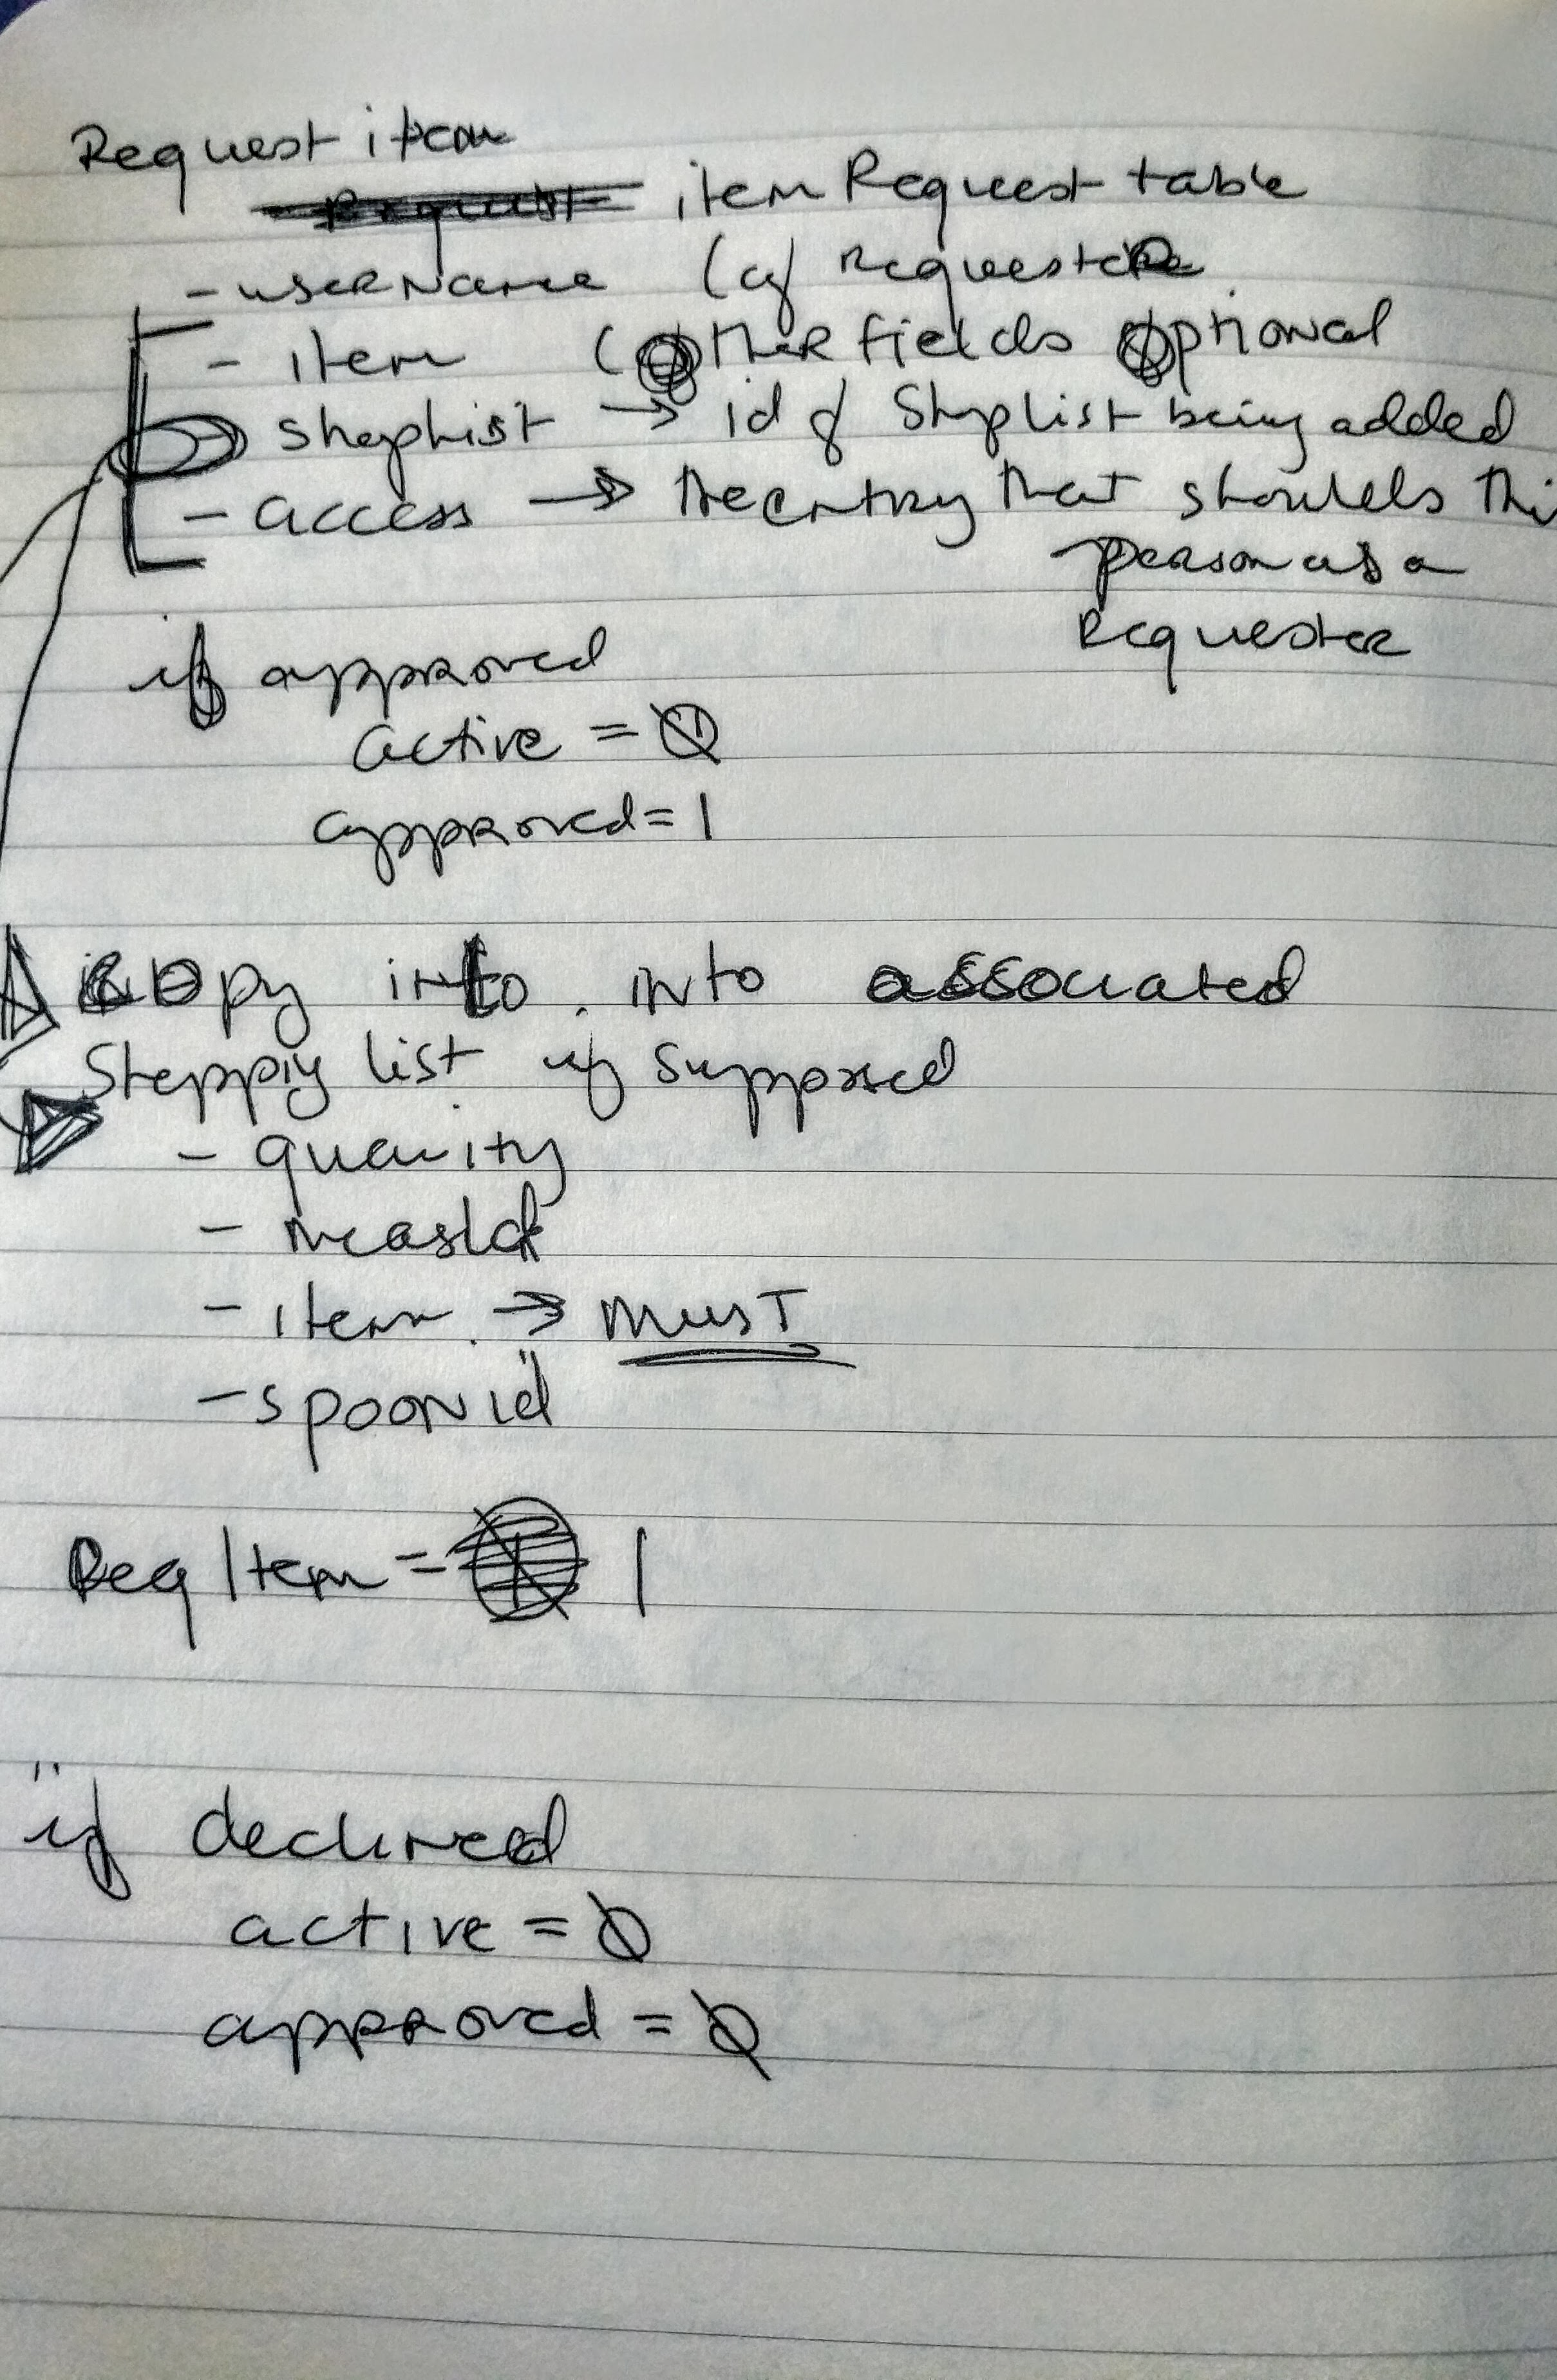 Request item
Request itemRequest table
- userName (of Requester
- item (other fields optional
- shoplist → id of Shoplist being added
- access → the entry that shows thi
person as a
Requester
if approved
active = 0
approved = 1
Copy info into associated
Shopping list if supposed
- quanity
- measId
- item → MUST
- spoonid
ReqItem = 1
if declined
active = 0
approved = 0